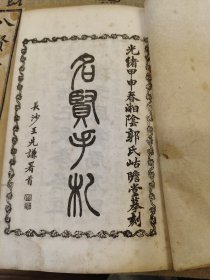 光緒甲申春湘陰郭氏岵瞻堂摹刻
名賢手札
長沙王先謙署首
八賢